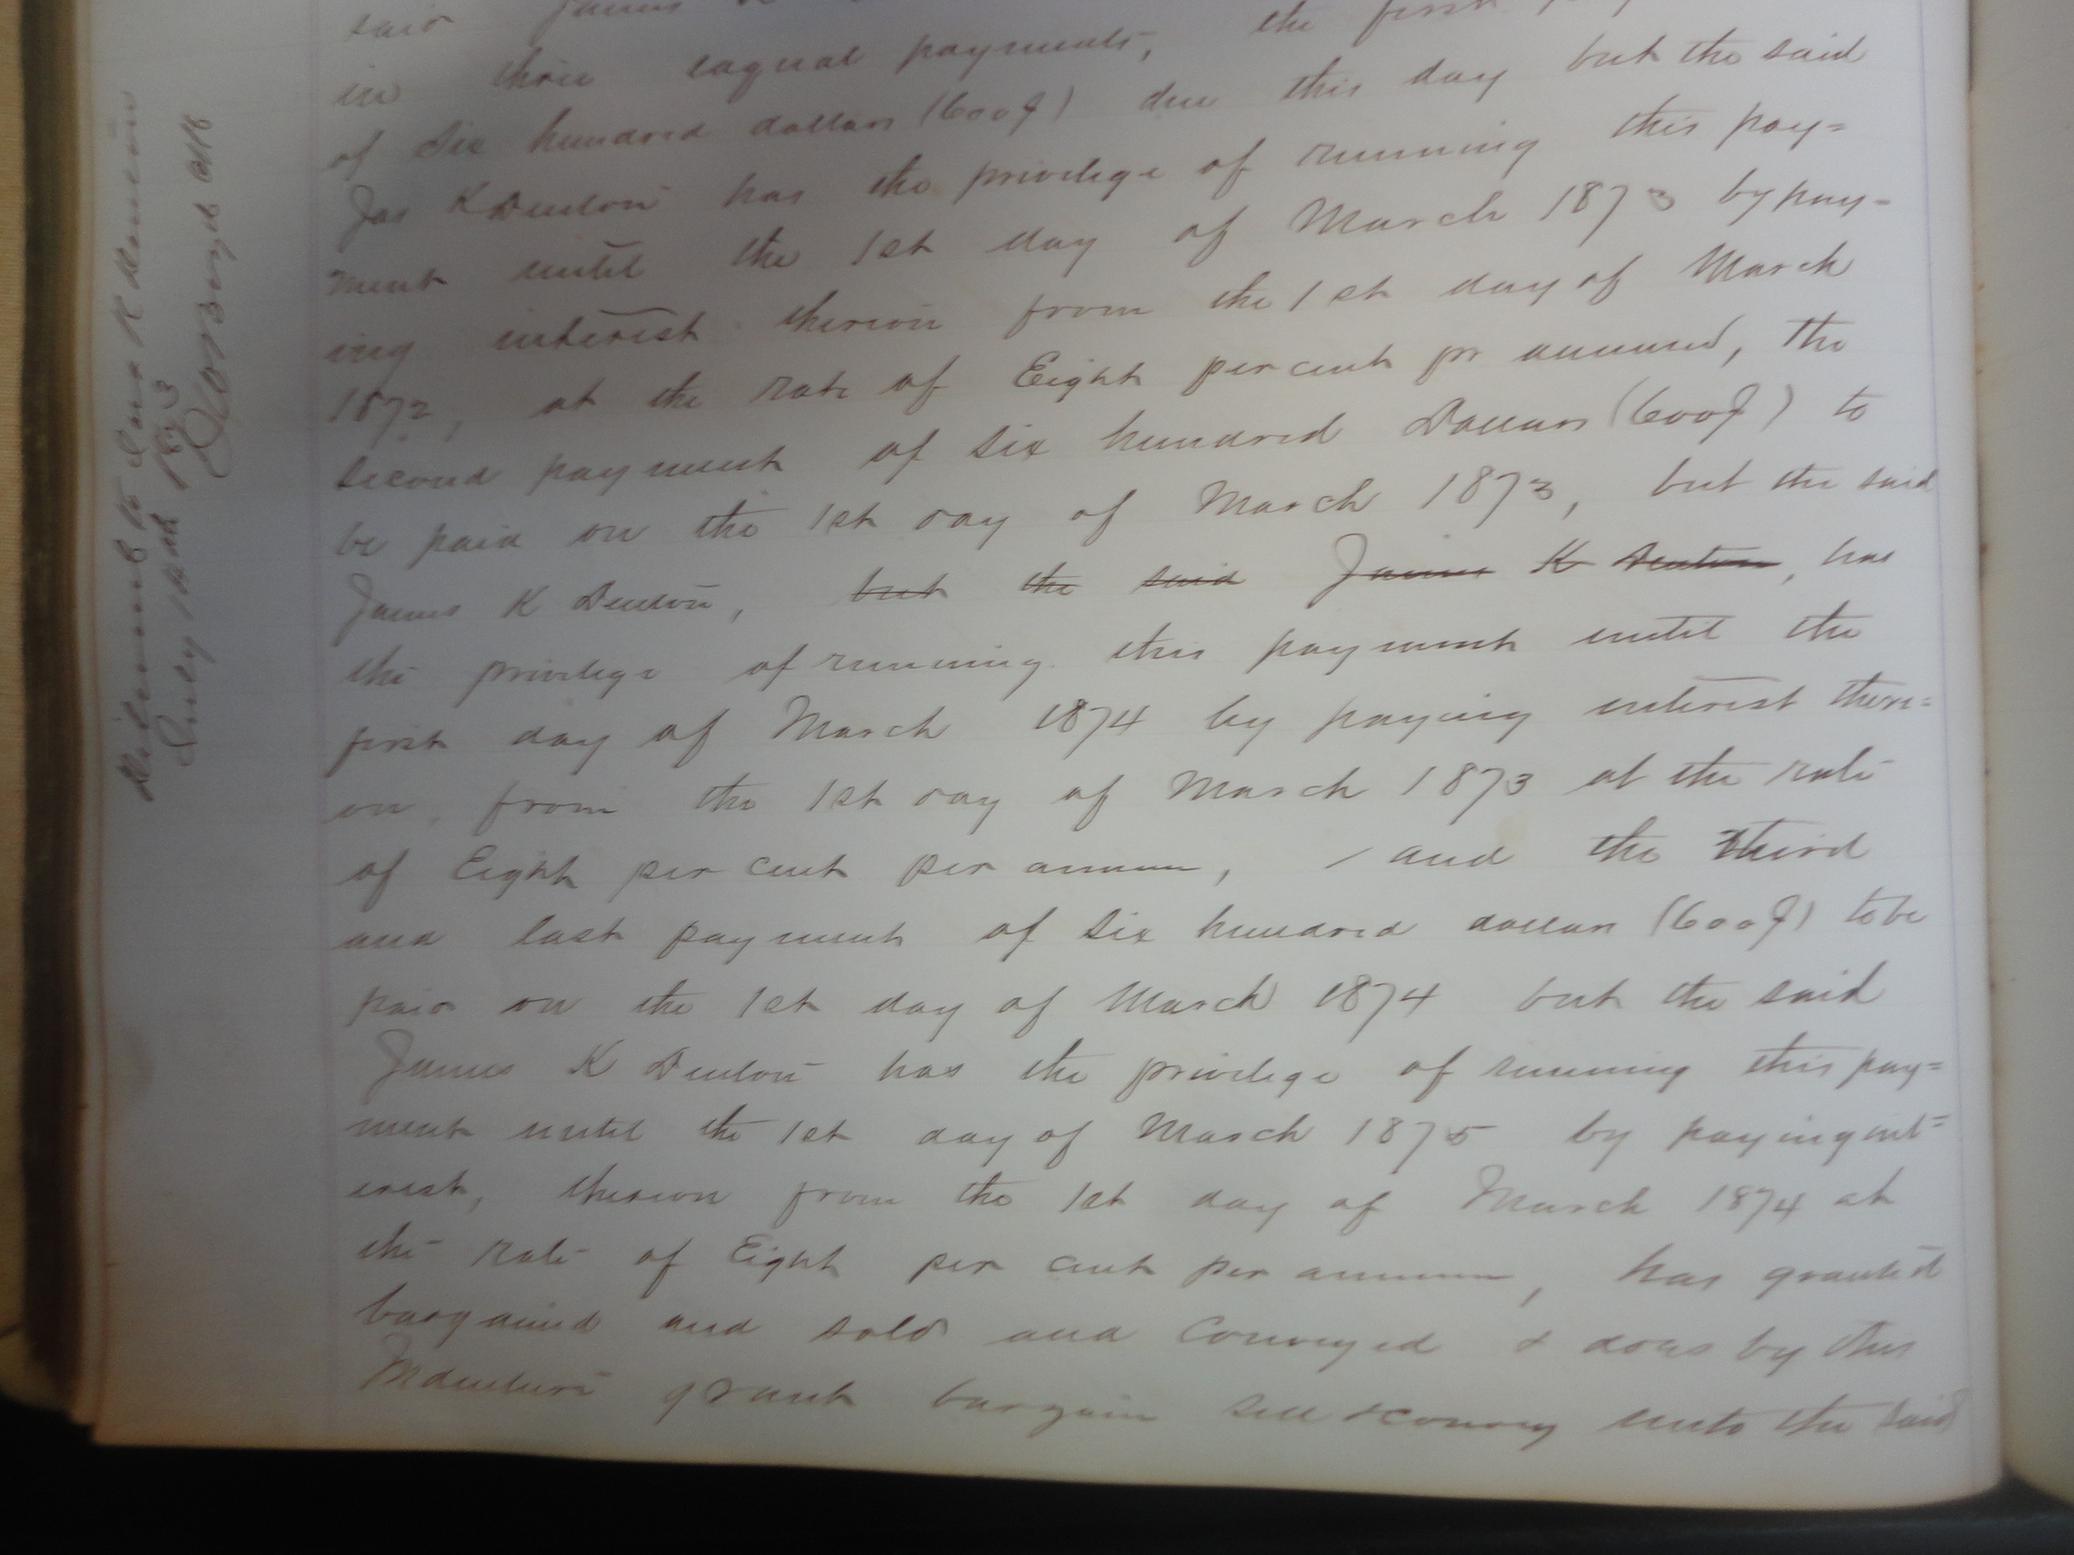 said James
in three eaqual payments, the first
of six hundred dollars (600$) due this day but the said
Jas K Denton has the privilege of running this pay=
ment until the 1st day of March 1873 by pay=
ing interest thereon from the 1st day of March
1872, at the rate of Eight per cent pr annum, the
second payment of six hundred Dollars (600$) to
be paid on the 1st day of March 1873, but the said
James K Denton, but the said James K Denton, has
the privilege of running this payment until the
first day of March 1874 by paying interest there=
on from the 1st day of March 1873 at the rate
of Eight per cent per annum, / and the third
and last payment of six hundred dollars (600$) to be
paid on the 1st day of March 1874 but the said
James K Denton has the privilege of running this pay=
ment until the 1st day of March 1875 by paying int=
erest, thereon from the 1st day of March 1874 at
the rate of Eight per cent per annum, has granted
bargained and sold and Conveyed & does by this
Indenture grant bargain sell & convey unto the said
to
July 1873